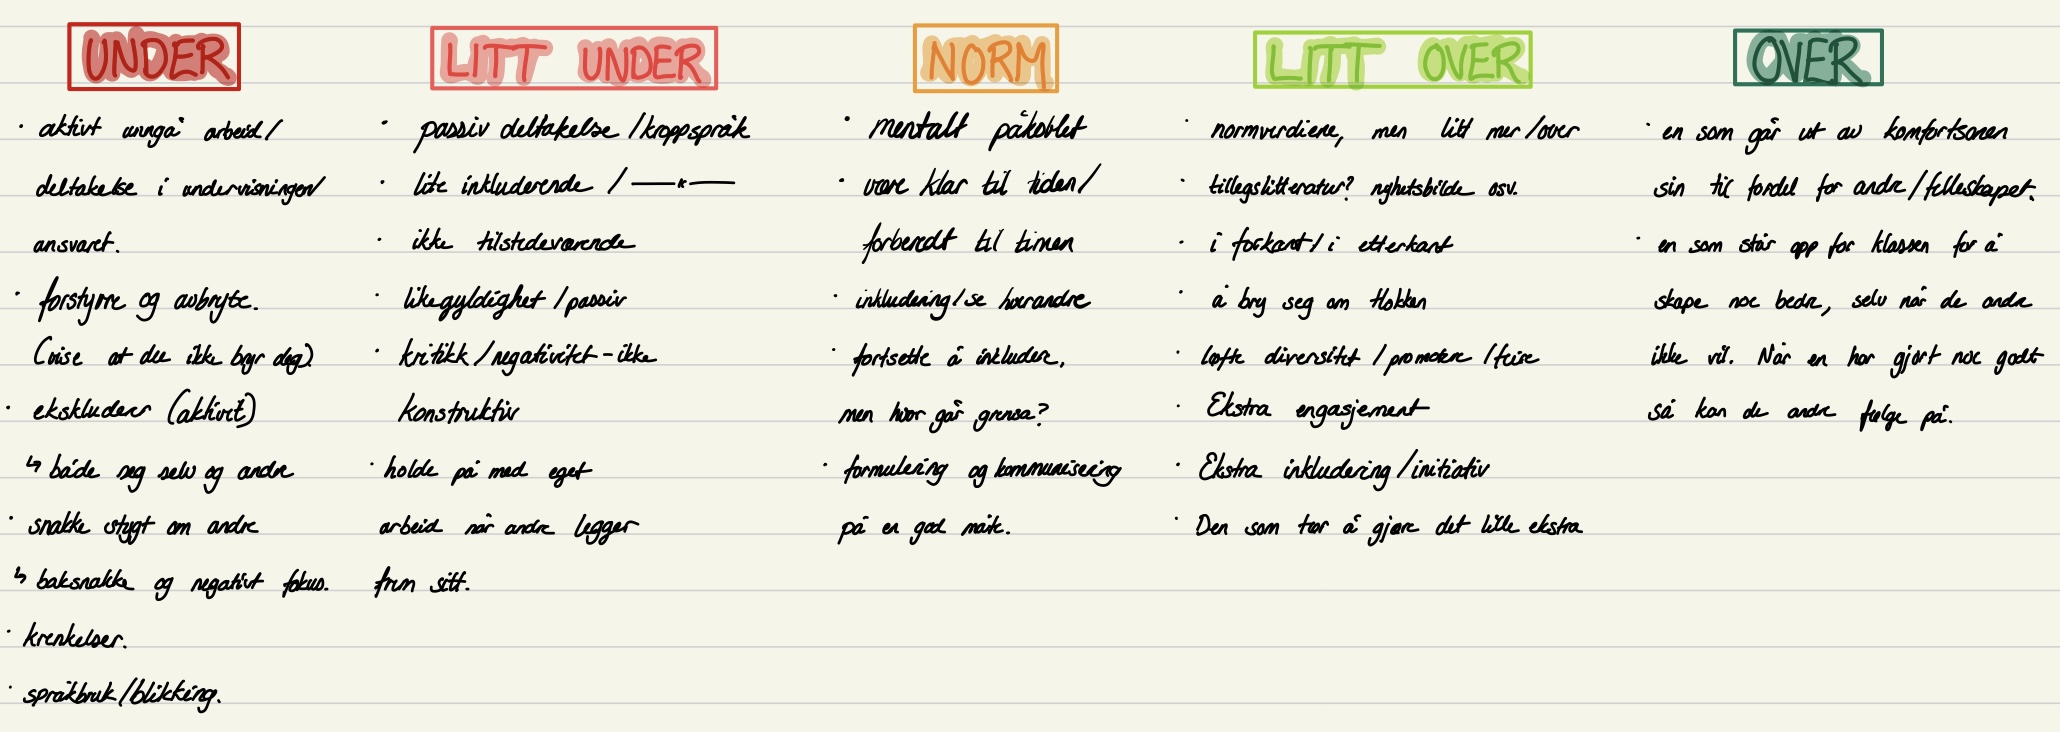 UNDER
· aktivt unngå arbeid/
deltakelse i undervisningen/
ansvaret.
· forstyrre og avbryte.
(vise at du ikke bryr deg)
· ekskluderer (aktivt)
↳ både seg selv og andre
· snakke stygt om andre
↳ baksnakke og negativt fokus.
· krenkelser.
· språkbruk/blikking.
LITT UNDER
· passiv deltakelse /kroppspråk
· lite inkluderende / —"—
· ikke tilstedeværende
· likegyldighet /passiv
· kritikk /negativitet - ikke
konstruktiv
· holde på med eget
arbeid når andre legger
frem sitt.
NORM
· mentalt påkoblet
· være klar til tiden/
forberedt til timen
· inkludering/se hverandre
· fortsette å inkludere,
men hvor går grensa?
· formulering og kommunisering
på en god måte.
LITT OVER
· normverdiene, men litt mer /over
· tillegslitteratur? nyhetsbilde osv.
· i forkant/ i etterkant
· å bry seg om flokken
· løfte diversitet /promotere /feire
· Ekstra engasjement
· Ekstra inkludering /initiativ
· Den som tør å gjøre det lille ekstra
OVER
· en som går ut av komfortsonen
sin til fordel for andre/felleskapet.
· en som står opp for klassen for å
skape noe bedre, selv når de andre
ikke vil. Når en har gjort noe godt
så kan de andre følge på.